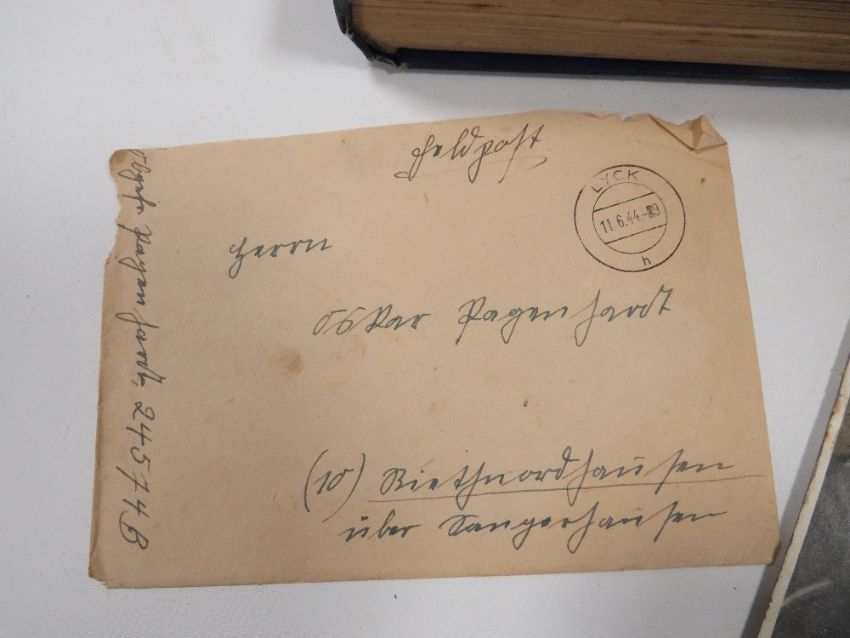 Feldpost
LYCK
11.6.44.-9
h
Herrn
Oskar Pagenhardt
(10) Riethnordhausen
über Sangerhausen
Pagenhardt, 24574B